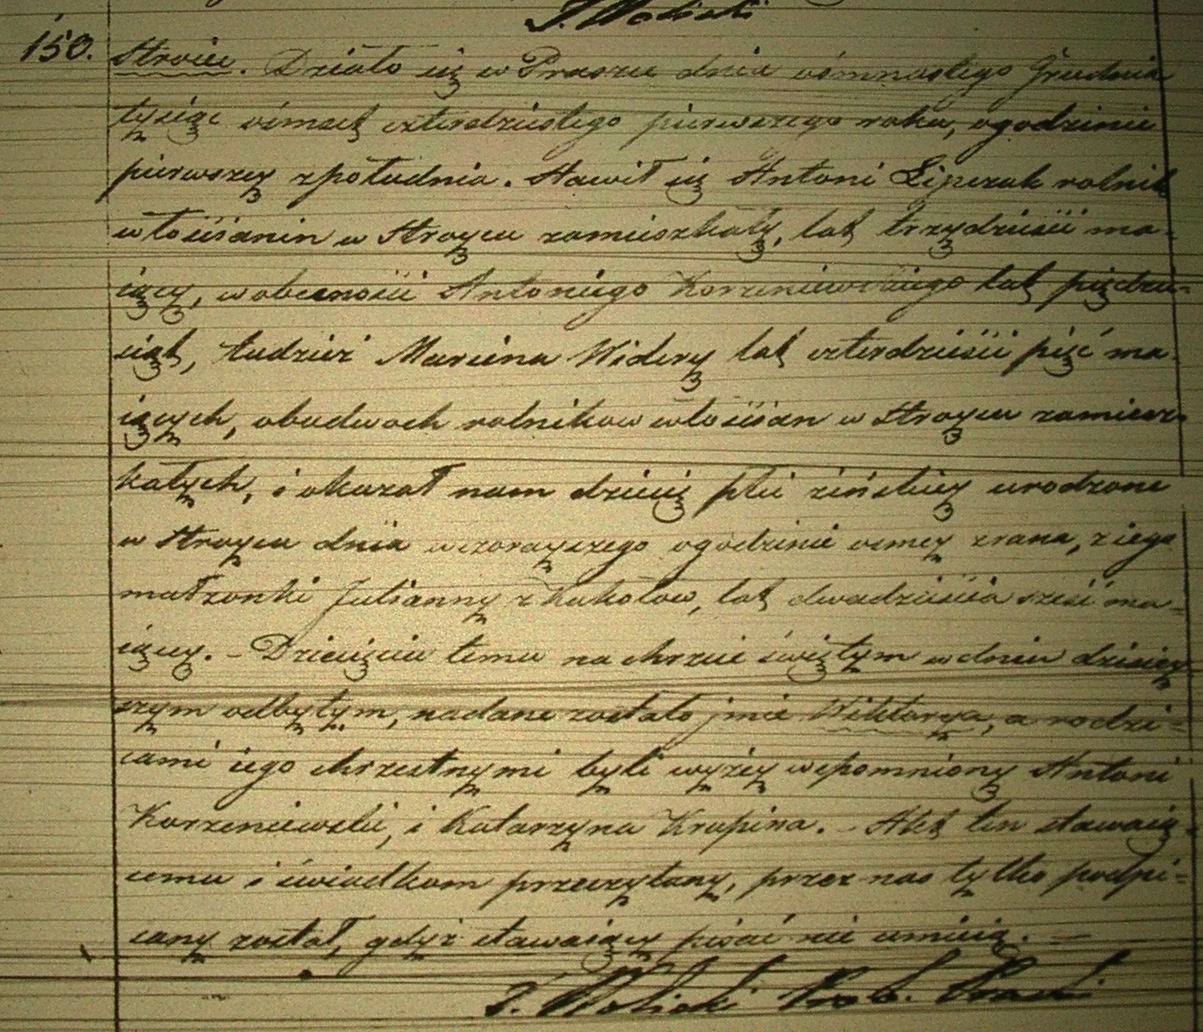 J. Wolicki
150. Stroiec. Działo się w Praszce dnia ósmnastego Grudnia
tysiąc ośmset czterdziestego pierwszego roku, ogodzinie
pierwszey zpołudnia. Stawił się Antoni Lipczak rolnik
włościanin w Stroycu zamieszkały, lat trzydzieści ma-
iący, wobecności Antoniego Korzeniewskiego lat pięćdzie-
siąt, tudzież Marcina Widery lat czterdzieści pięć ma-
iących, obudwoch rolnikow włościan w Stroycu zamiesz-
kałych, i okazał nam dziecię płci żeńskiey urodzone
w Stroycu dnia wczorayszego ogodzinie osmey zrana, z iego
małżonki Julianny z Kukołow, lat dwadzieścia sześć ma-
iącey. – Dziecięciu temu na chrzcie świętym w dniu dzisiey-
szym odbytym, nadane zostało jmie Wiktorya, a rodzi-
cami iego chrzestnymi byli wyżey wspomniony Antoni
Korzeniewski, i Katarzyna Krupina. – Akt ten stawaią-
cemu i świadkom przeczytany, przez nas tylko podpi-
sany został, gdyż stawaiący pisać nie umieią.
J. Wolicki Prob. Praszki